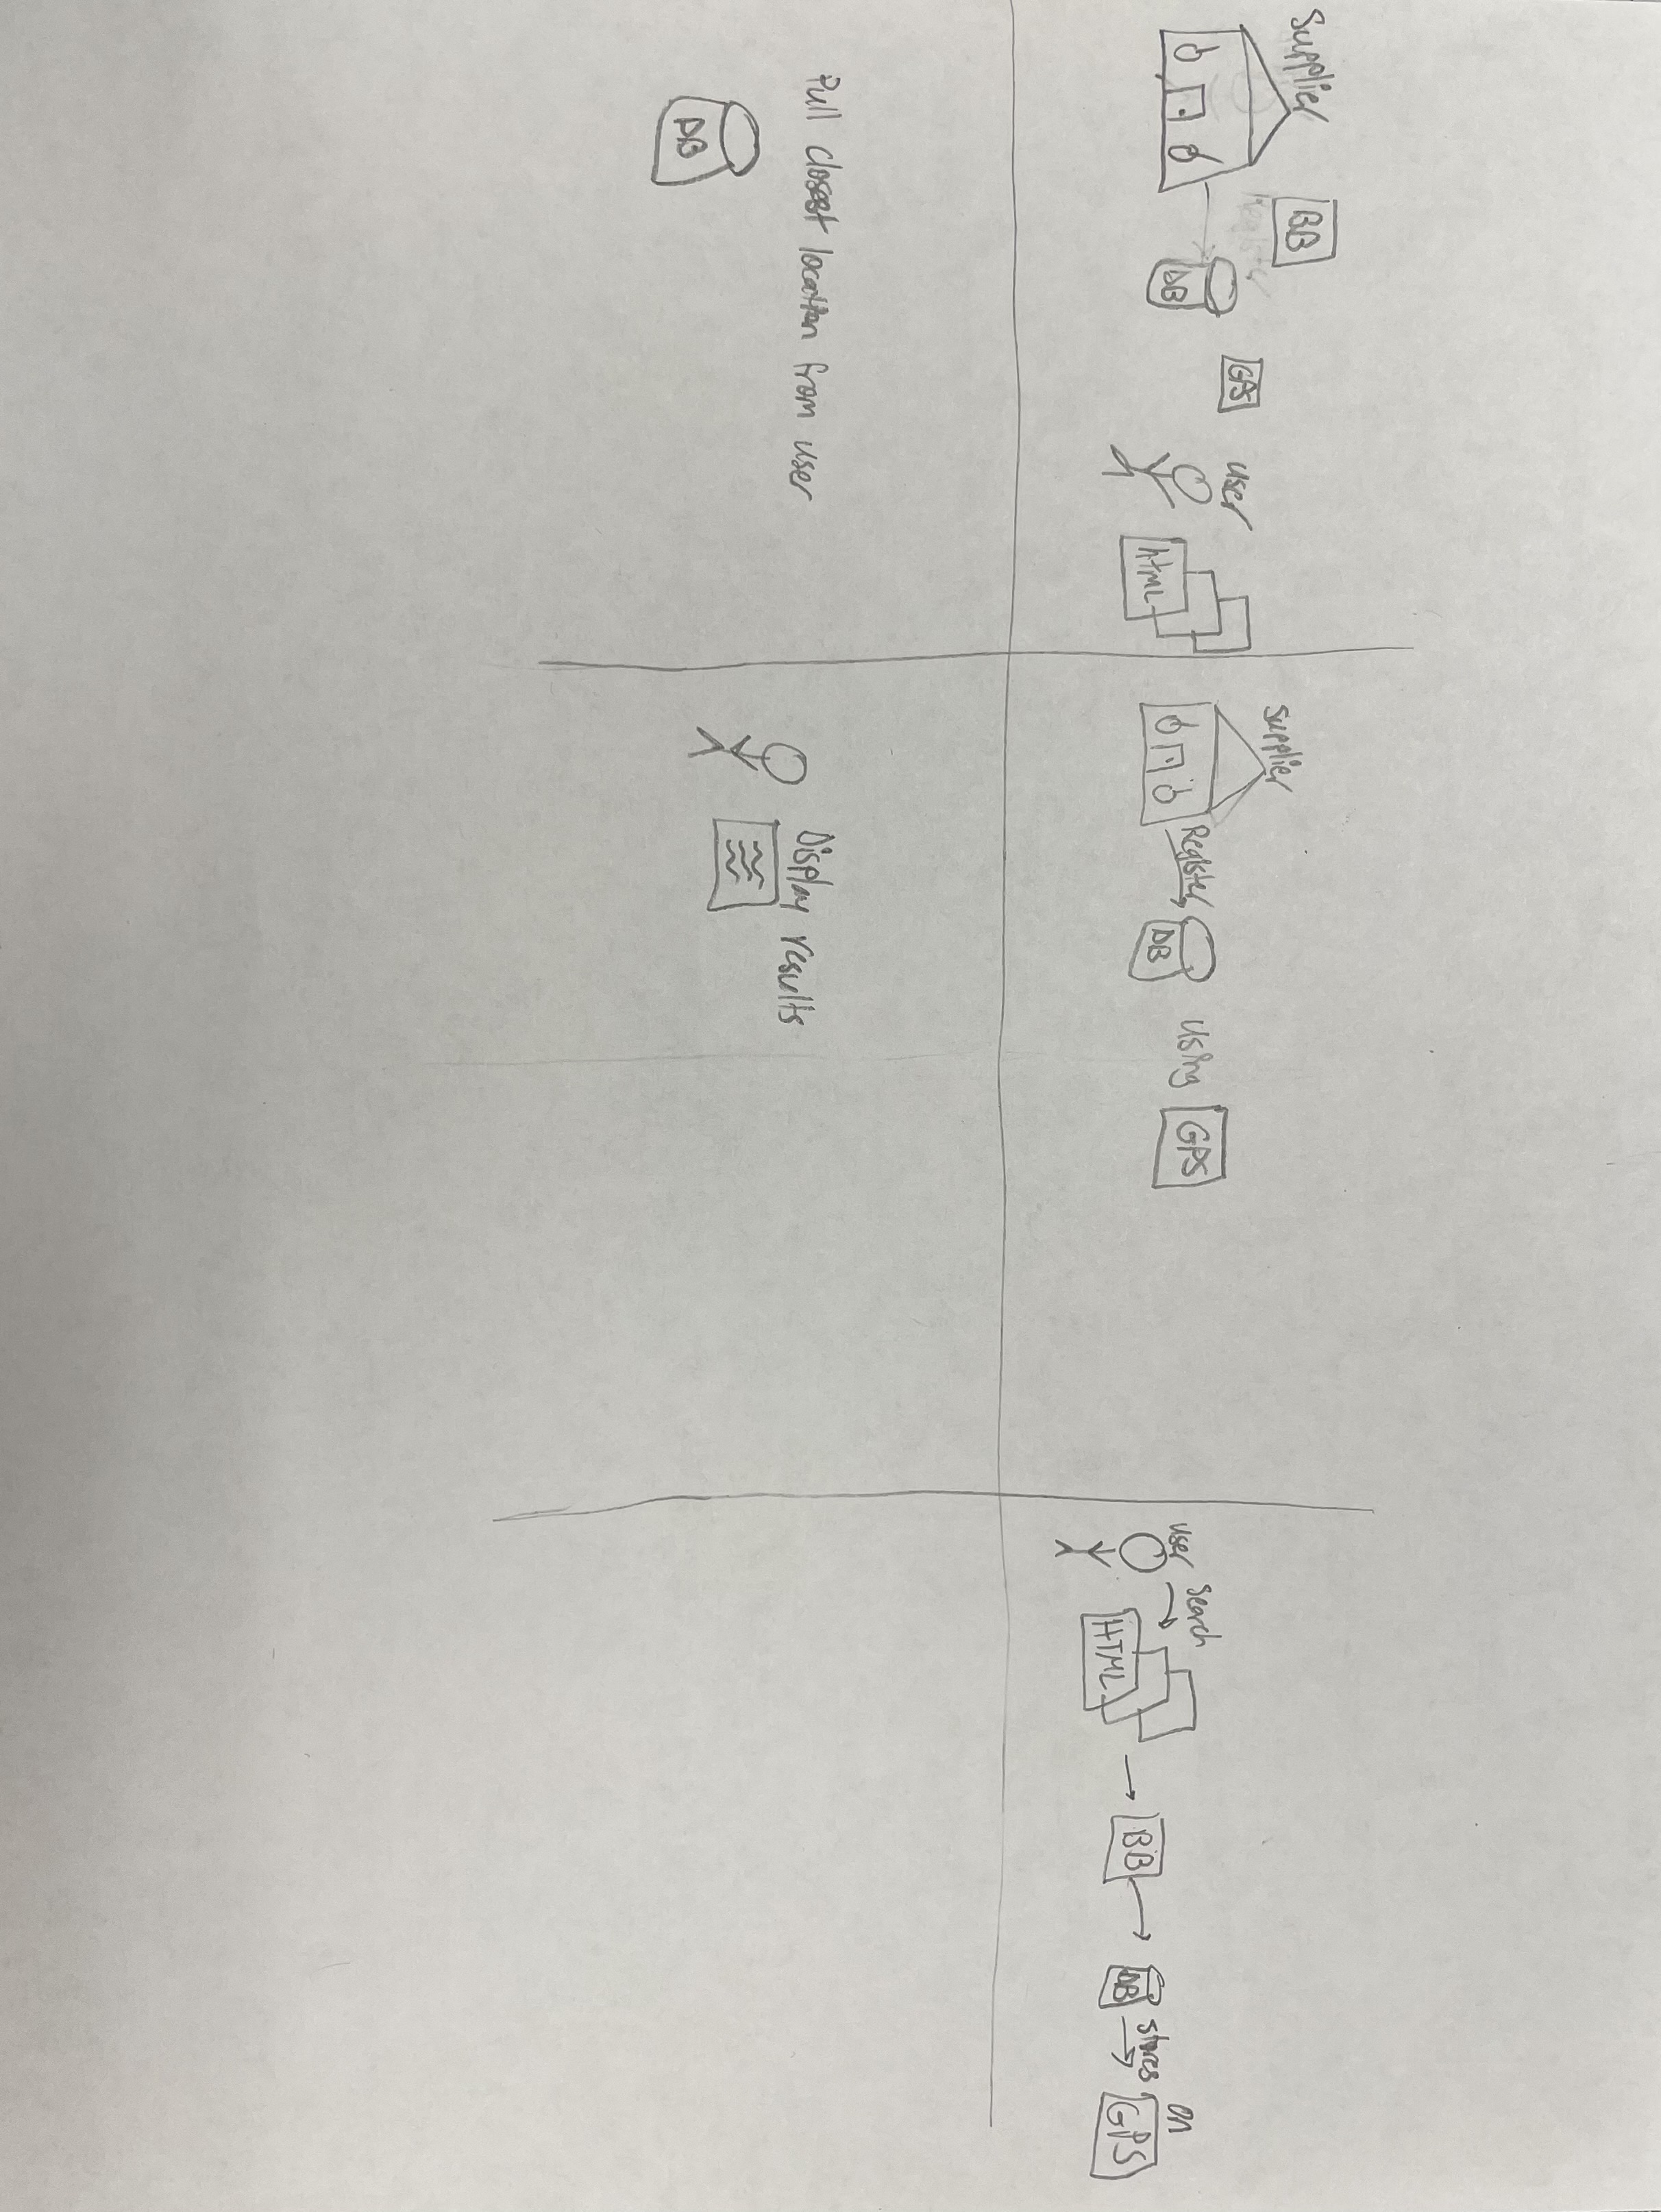 Supplier
BB
Register
DB
GPS
user
html
Supplier
Register
DB
using
GPS
user
search
HTML
BB
DB
stores
on
GPS
Pull closest location from user
DB
Display results